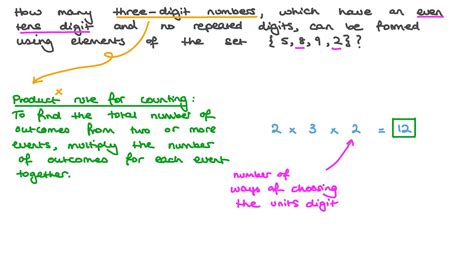 How many three-digit numbers, which have an even
tens digit and no repeated digits, can be formed
using elements of the set {5, 8, 9, 2}?
×
Product rule for counting:
To find the total number of
outcomes from two or more
events, multiply the number
of outcomes for each event
together.
2 × 3 × 2 = 12
number of
ways of choosing
the units digit